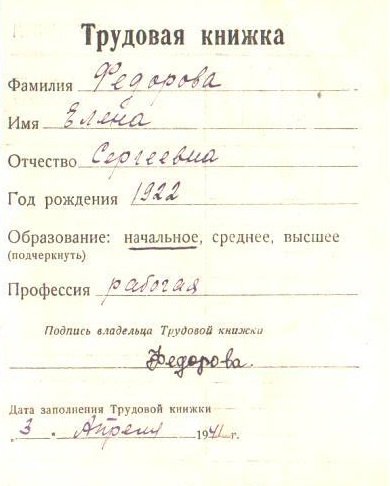 Трудовая книжка
Фамилия Федорова
Имя Елена
Отчество Сергеевна
Год рождения 1922
Образование: начальное, среднее, высшее
(подчеркнуть)
Профессия рабочая
Подпись владельца Трудовой книжки
Федорова.
Дата заполнения Трудовой книжки
„3 " Апреля 1941 г.